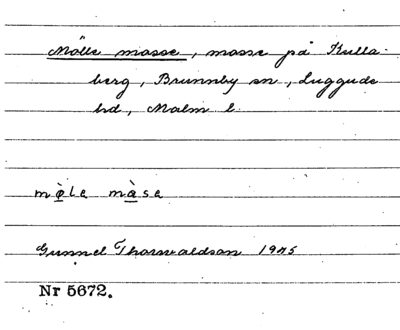 Mölle mosse, mosse på Kulla-
berg, Brunnby sn, Luggude
hd, Malm l.
mø̀lɐ màsɐ
Gunnel Thorwaldson 1945
Nr 5672.